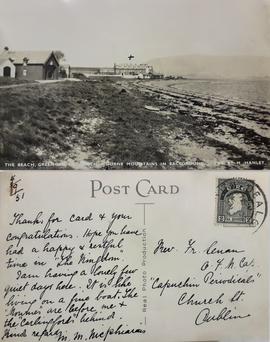 THE BEACH, GREEN MOURNE MOUNTAINS IN BACKGROUND
HANLEY.
POST CARD
9
51
Thanks for card & your
congratulations. Hope you have
had a happy & restful
time in "the Kingdom.
I am having a lovely few
quiet days here. It is like
living on a fine boat. The
Mournes are before me &
the Carlingfords behind.
Kinds regards
M. M.
Real Photo Produced
Rev. Fr. Senan
O.F.M. Cap.
"Capuchin Periodicals"
Church St
Dublin